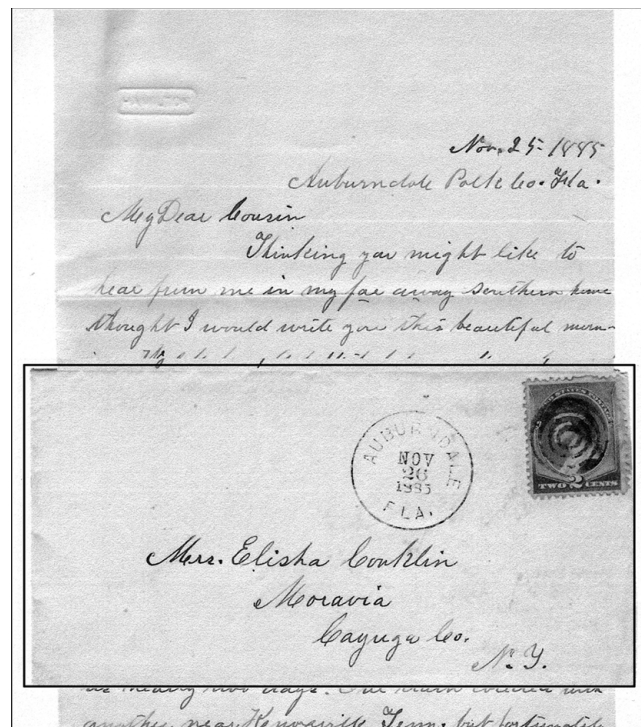 HAMILTON
Nov. 25 - 1885
Auburndale Polk Co. Fla.
My Dear Cousin
Thinking you might like to
hear from me in my far away southern home
thought I would write you this beautiful morn-
AUBURNDALE
NOV
26
1885
FLA.
UNITED STATES POSTAGE
TWO 2 CENTS
Mrs. Elisha Conklin
Moravia
Cayuga Co.
N.Y.
days. One train collided with
another near Tenn. but fortunately